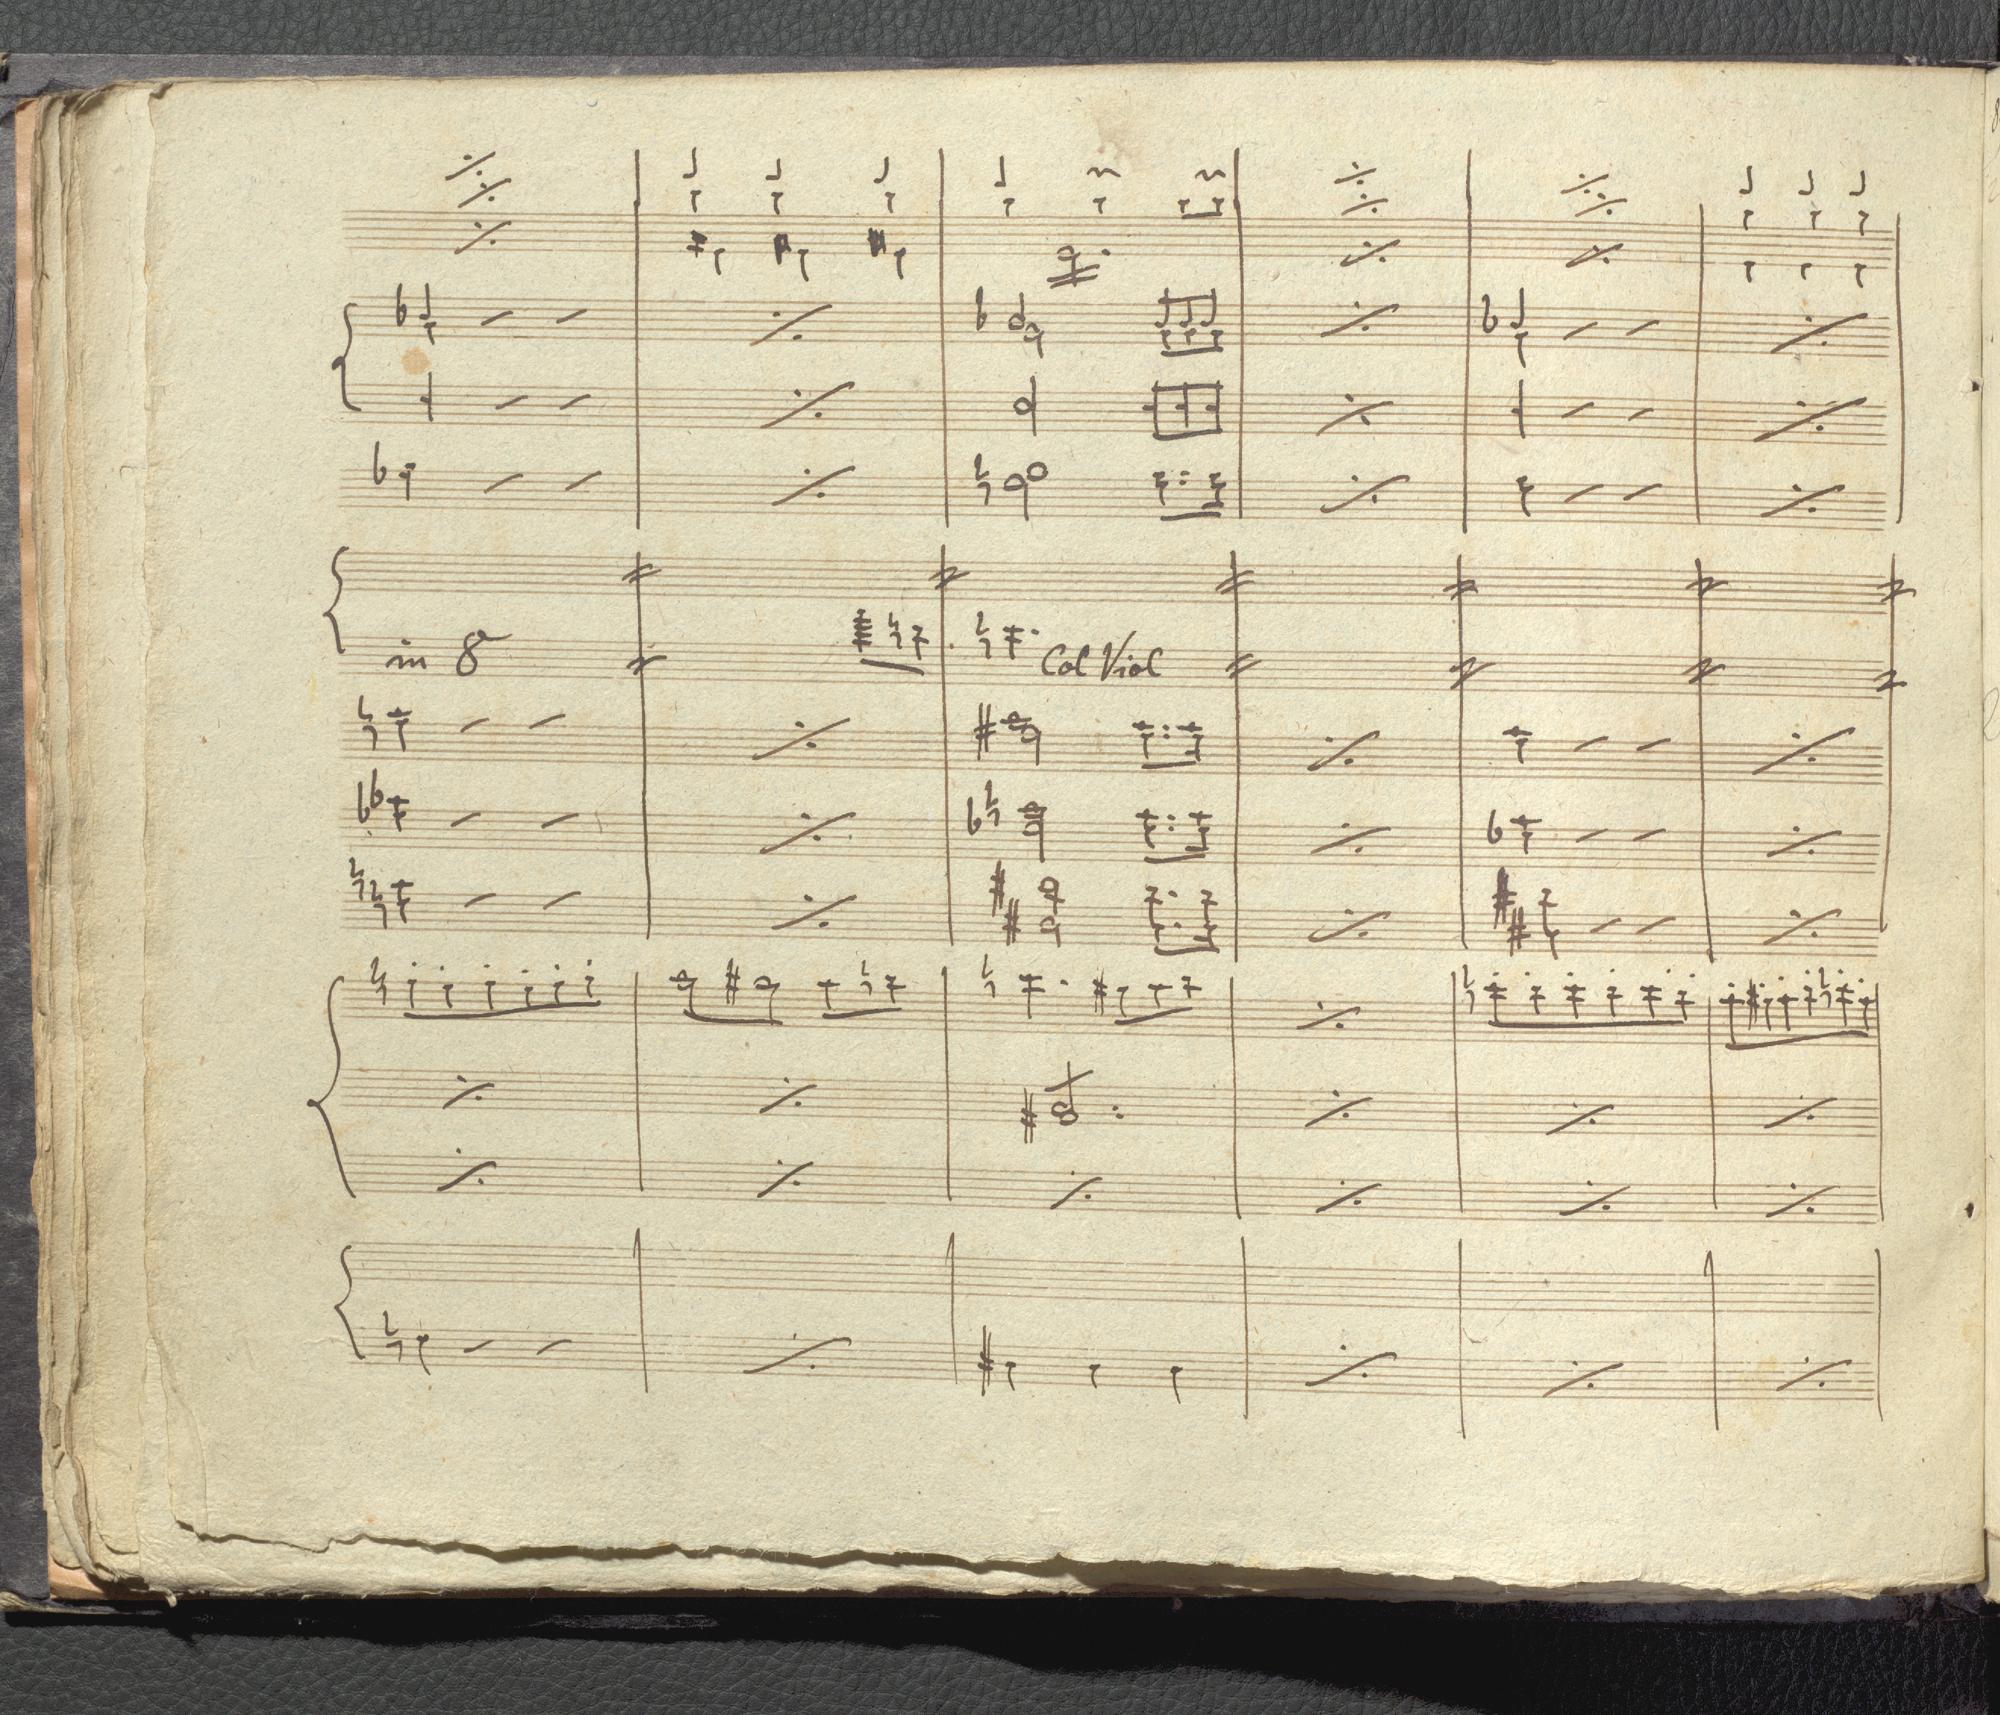 in 8ª
Col Viol